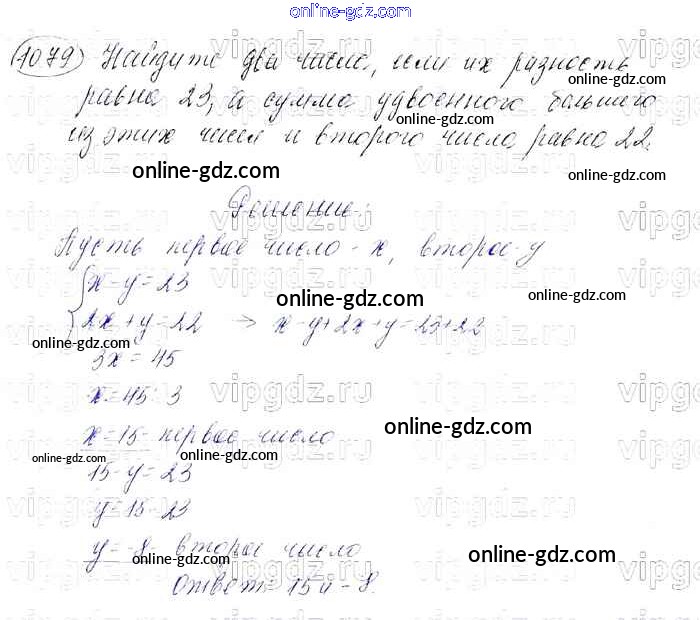 online-gdz.com
1079 Найдите два числа, если их разность
равна 23, а сумма удвоенного большего
из этих чисел и второго числа равна 22.
online-gdz.com
Решение:
Пусть первое число - x, второе - y
x - y = 23
online-gdz.com
2x + y = 22 → x - y + 2x + y = 23 + 22
online-gdz.com
3x = 45
x = 45 : 3
online-gdz.com
x = 15 - первое число
online-gdz.com online-gdz.com
15 - y = 23
y = 15 - 23
y = -8 второе число
online-gdz.com online-gdz.com
Ответ: 15 и -8.
online-gdz.com
vipgdz.ru